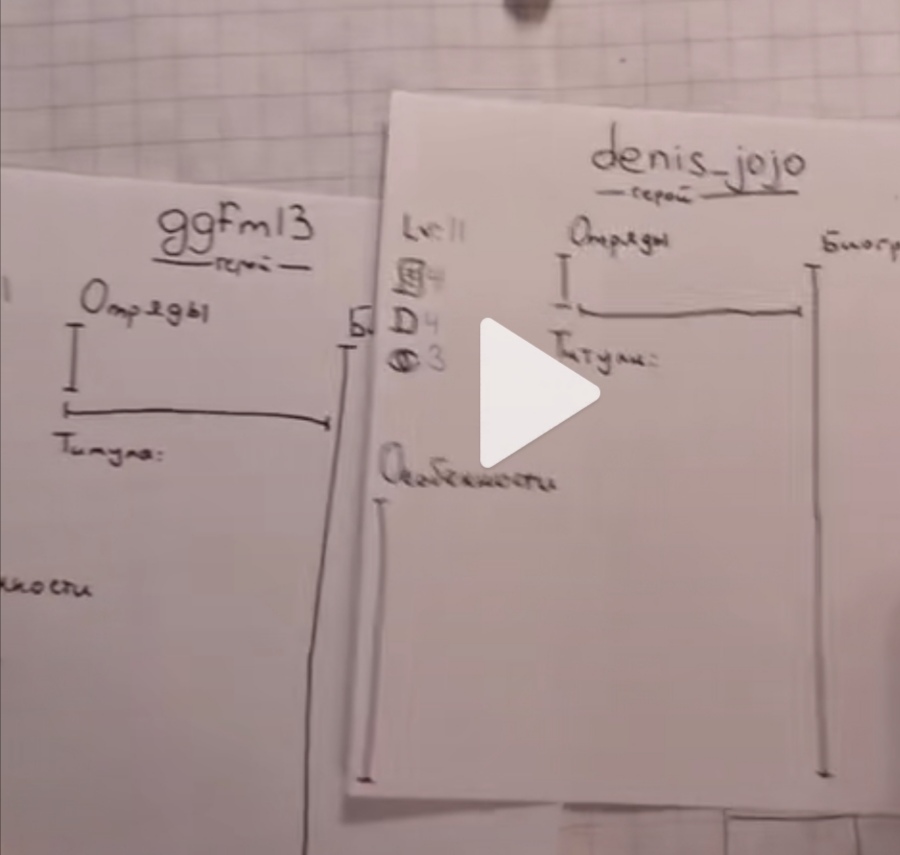 ggFm13
герой
Отряды
Б
Титулы:
нности
denis_jojo
герой
Lvl:11
4
D 4
3
Отряды
Биогр
Титулы:
Особенности